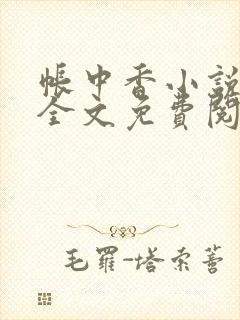 帳中香小說
全文免費閱
毛羅-塔索蒈